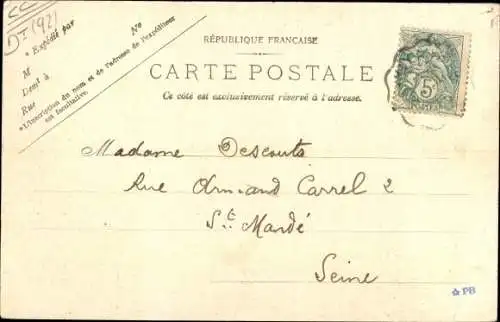 DI (92)
* Expédié par
N°
M
Demt à
Rue
*L'inscription du nom et de l'adresse de l'expéditeur
est facultative.
RÉPUBLIQUE FRANÇAISE
CARTE POSTALE
Ce côté est exclusivement réservé à l'adresse.
5
Madame Descouts
Rue Armand Carrel 2
St Mandé
Seine
PB